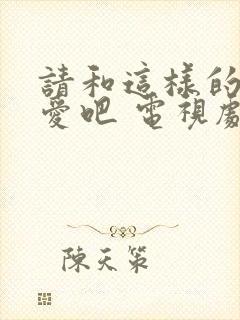 請和這樣的
愛吧 電視劇
陳天策